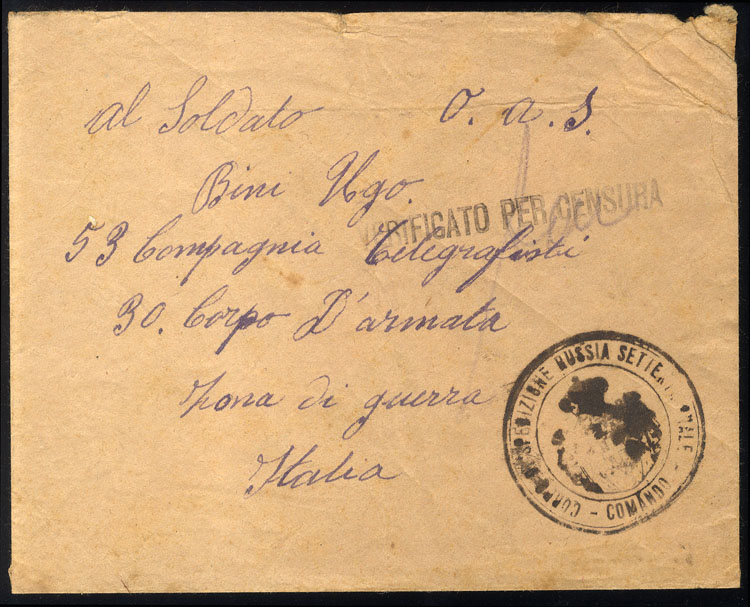 Al Soldato O. A. S.
Bini Ugo.
VERIFICATO PER CENSURA
53 Compagnia Telegrafisti
30. Corpo D'armata
Zona di guerra
Italia
CORPO DI SPEDIZIONE RUSSIA SETTENTRIONALE - COMANDO -